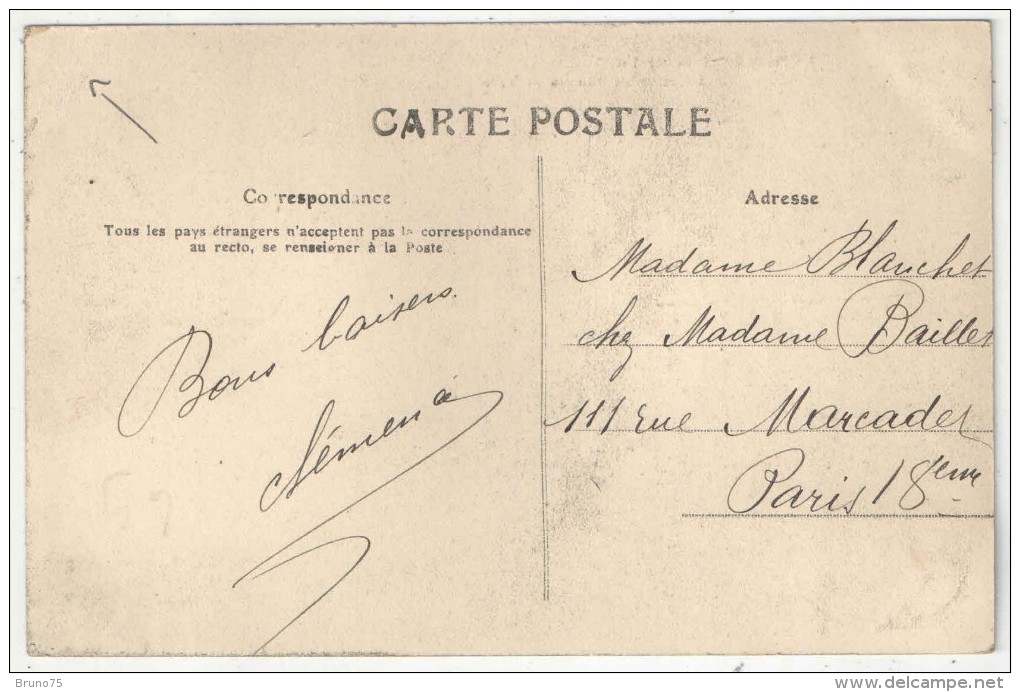 CARTE POSTALE
Correspondance
Tous les pays étrangers n'acceptent pas la correspondance
au recto, se renseigner à la Poste
Bons baisers.
Adresse
Madame Blanchet
chez Madame Baillet
111 rue Marcadet
Paris 18eme
Bruno75
delcampe.net